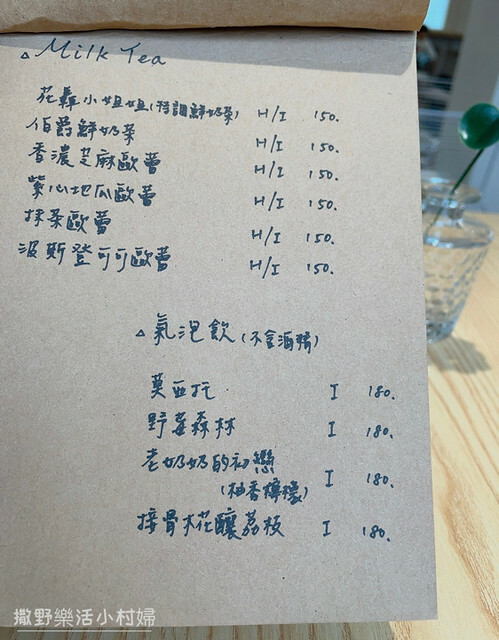 △ Milk Tea
花轟小姐姐(特調鮮奶茶) H/I 150.
伯爵鮮奶茶 H/I 150.
香濃芝麻歐蕾 H/I 150.
紫心地瓜歐蕾 H/I 150.
抹茶歐蕾 H/I 150.
波斯登可可歐蕾 H/I 150.
△ 氣泡飲(不含酒精)
莫西托 I 180.
野莓森林 I 180.
老奶奶的初戀 I 180.
(柚香檸檬)
接骨木花釀荔枝 I 180.
撒野樂活小村婦